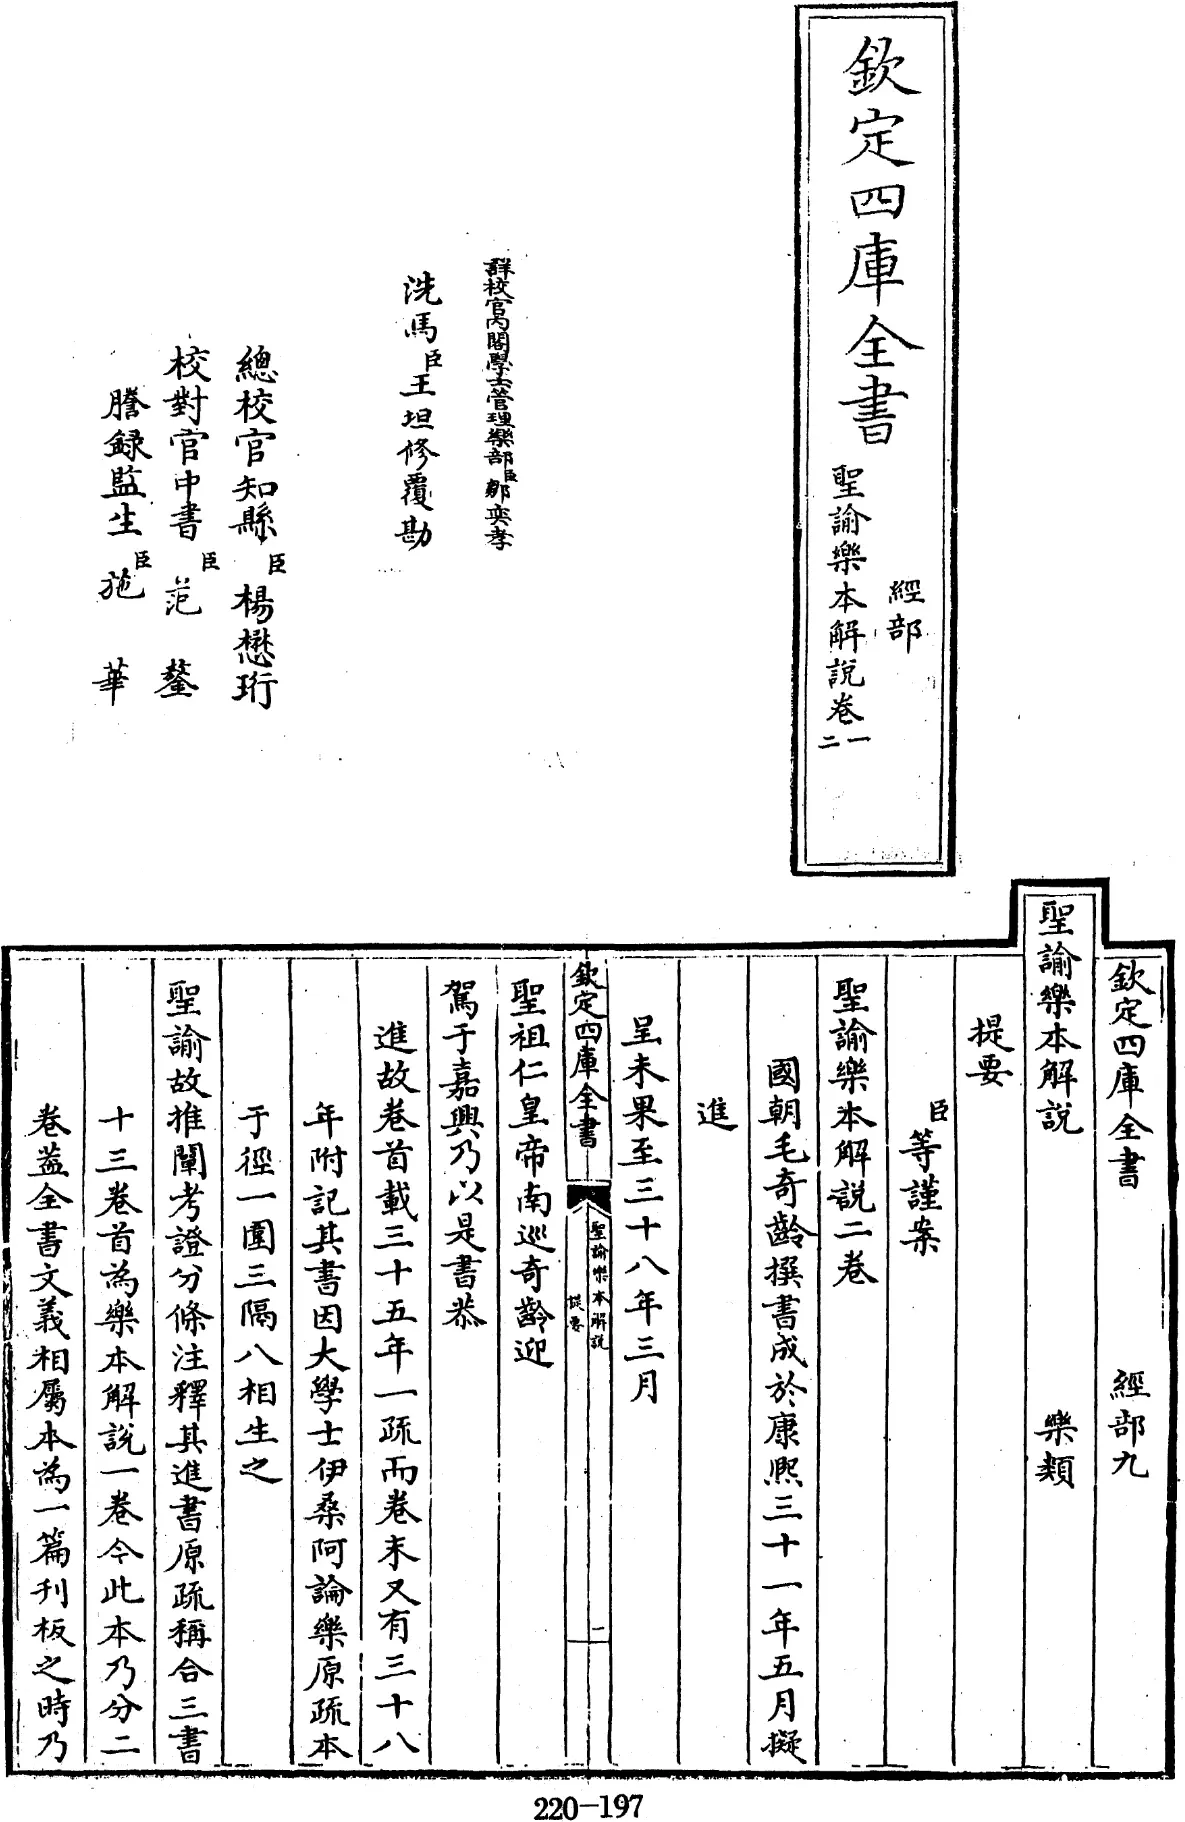 欽定四庫全書
經部
聖諭樂本解說卷一
二
詳校官內閣學士管理樂部臣鄒奕孝
洗馬臣王坦修覆勘
總校官知縣臣楊懋珩
校對官中書臣范鏊
謄錄監生臣施華
欽定四庫全書 經部九
聖諭樂本解說 樂類
提要
臣等謹案
聖諭樂本解說二卷
國朝毛奇齡撰書成於康熙三十一年五月擬
進
呈未果至三十八年三月
欽定四庫全書
聖諭樂本解說
提要
二
聖祖仁皇帝南巡奇齡迎
駕于嘉興乃以是書恭
進故卷首載三十五年一疏而卷末又有三十八
年附記其書因大學士伊桑阿論樂原疏本
于徑一圍三隔八相生之
聖諭故推闡考證分條注釋其進書原疏稱合三書
十三卷首為樂本解說一卷今此本乃分二
卷葢全書文義相屬本為一篇刋板之時乃
220-197